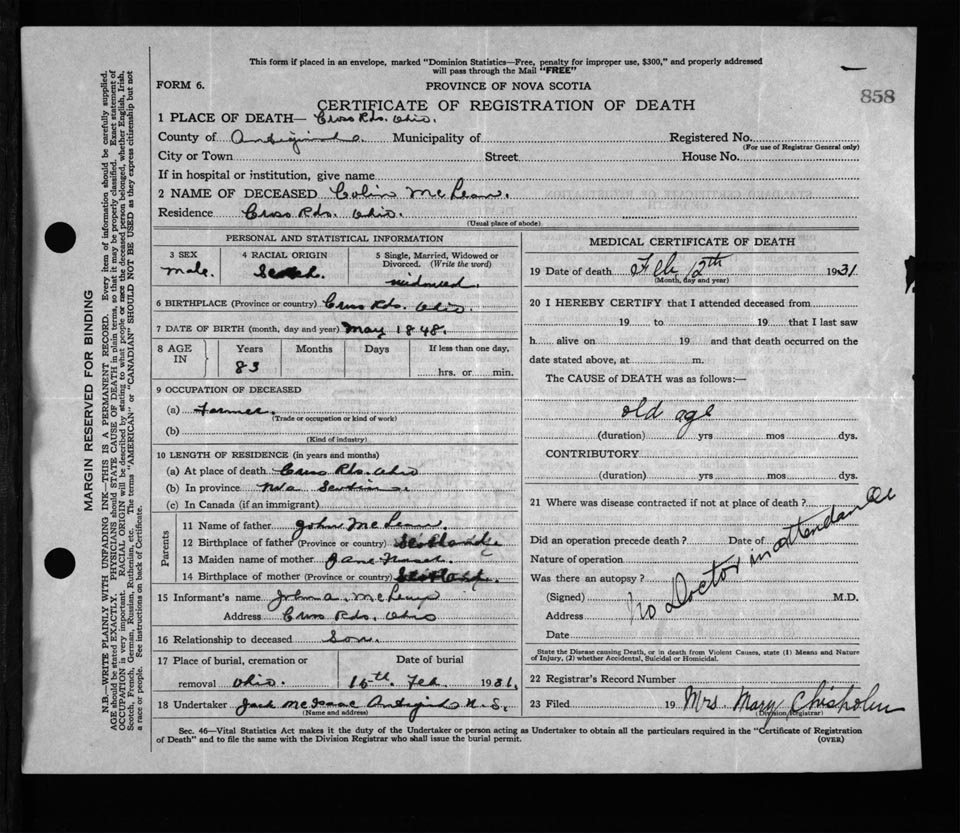 This form if placed in an envelope, marked "Dominion Statistics—Free, penalty for improper use, $300," and properly addressed
will pass through the Mail "FREE"
FORM 6.
PROVINCE OF NOVA SCOTIA
858
CERTIFICATE OF REGISTRATION OF DEATH
1 PLACE OF DEATH— Cross Rds. Ohio.
County of Antigonish. Municipality of Registered No.
(For use of Registrar General only)
City or Town Street House No.
If in hospital or institution, give name
2 NAME OF DECEASED Colin McLean.
Residence Cross Rds. Ohio.
(Usual place of abode)
PERSONAL AND STATISTICAL INFORMATION
3 SEX 4 RACIAL ORIGIN 5 Single, Married, Widowed or
Divorced. (Write the word)
male. Scotch. widowed.
6 BIRTHPLACE (Province or country) Cross Rds. Ohio.
7 DATE OF BIRTH (month, day and year) May 1848.
8 AGE IN Years Months Days If less than one day,
83 hrs. or min.
9 OCCUPATION OF DECEASED
(a) Farmer.
(Trade or occupation or kind of work)
(b)
(Kind of industry)
10 LENGTH OF RESIDENCE (in years and months)
(a) At place of death Cross Rds. Ohio
(b) In province Nva Scotia.
(c) In Canada (if an immigrant)
Parents
11 Name of father John McLean.
12 Birthplace of father (Province or country) Scotland
13 Maiden name of mother Jane Fraser.
14 Birthplace of mother (Province or country) Scotland.
15 Informant's name John A. McLean
Address Cross Rds. Ohio
16 Relationship to deceased Son.
17 Place of burial, cremation or Date of burial
removal Ohio. 16th Feb 1931.
18 Undertaker Jack McIsaac Antigonish N.S.
(Name and address)
MEDICAL CERTIFICATE OF DEATH
19 Date of death Feb 12th 1931
(Month, day and year)
20 I HEREBY CERTIFY that I attended deceased from
19 to 19 that I last saw
h alive on 19 and that death occurred on the
date stated above, at m.
The CAUSE of DEATH was as follows:—
old age
(duration) yrs mos dys.
CONTRIBUTORY
(duration) yrs mos dys.
21 Where was disease contracted if not at place of death?
Did an operation precede death? Date of
Nature of operation
Was there an autopsy?
(Signed) M.D.
Address
Date
No Doctor in attendance
State the Disease causing Death, or in death from Violent Causes, state (1) Means and Nature
of Injury, (2) whether Accidental, Suicidal or Homicidal.
22 Registrar's Record Number
23 Filed 19 Mrs. Mary Chisholm
(Division Registrar)
Sec. 46—Vital Statistics Act makes it the duty of the Undertaker or person acting as Undertaker to obtain all the particulars required in the "Certificate of Registration
of Death" and to file the same with the Division Registrar who shall issue the burial permit.
(OVER)
MARGIN RESERVED FOR BINDING
N.B.—WRITE PLAINLY WITH UNFADING INK—THIS IS A PERMANENT RECORD. Every item of information should be carefully supplied.
AGE should be stated EXACTLY. PHYSICIANS should STATE CAUSE OF DEATH in plain terms, so that it may be properly classified. Exact statement of
OCCUPATION is very important. RACIAL ORIGIN will be described by stating to what people or race the deceased person belonged, whether English, Irish,
Scotch, French, German, Russian, Ruthenian, etc. The terms "AMERICAN" or "CANADIAN" SHOULD NOT BE USED as they express citizenship but not
a race or people. See instructions on back of Certificate.